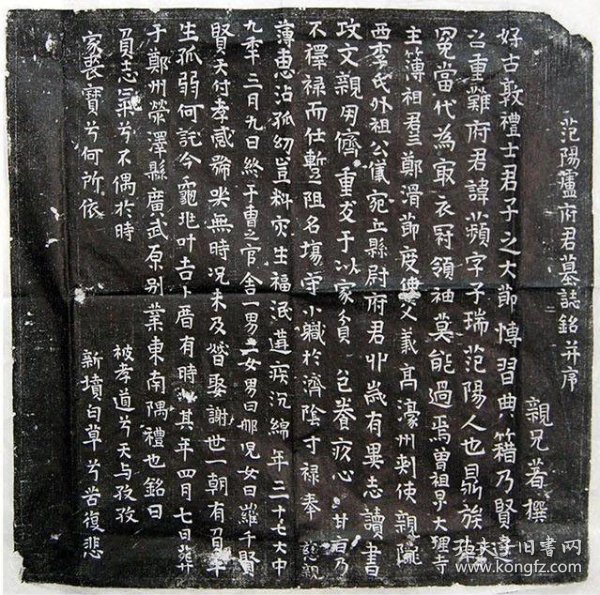 范陽盧府君墓誌銘并序
親兄著撰
好古敦禮士君子之大節博習典籍乃賢
召重難府君諱蘋字子瑞范陽人也鼎族
冕當代為最衣冠領袖莫能過焉曾祖昇大理寺
主簿祖君三鄭滑節度使父羲高濠州刺使親隴
西李氏外祖公儀宛丘縣尉府君丱歲有異志讀書
攻文親朋儕重交于以家貧色養疚心甘旨乃
不擇祿而仕暫阻名場筮小職於濟陰寸祿奉親
薄惠沾孤幼豈料灾生福泯遘疾沉綿年三十七大中
九年三月九日終于曹之官舍一男二女男曰那兒女曰羅千賢
賢天付孝感號哭無時況未及婚娶謝世一朝有
生孤弱何託今龜兆叶吉卜厝有時以其年四月七日葬
于鄭州滎澤縣廣武原別業東南隅禮也銘曰
負志氣兮不偶於時
被孝道兮天与孜孜
家喪寶兮何所依
新墳白草兮苦復悲
孔夫子旧書网
www.kongfz.com